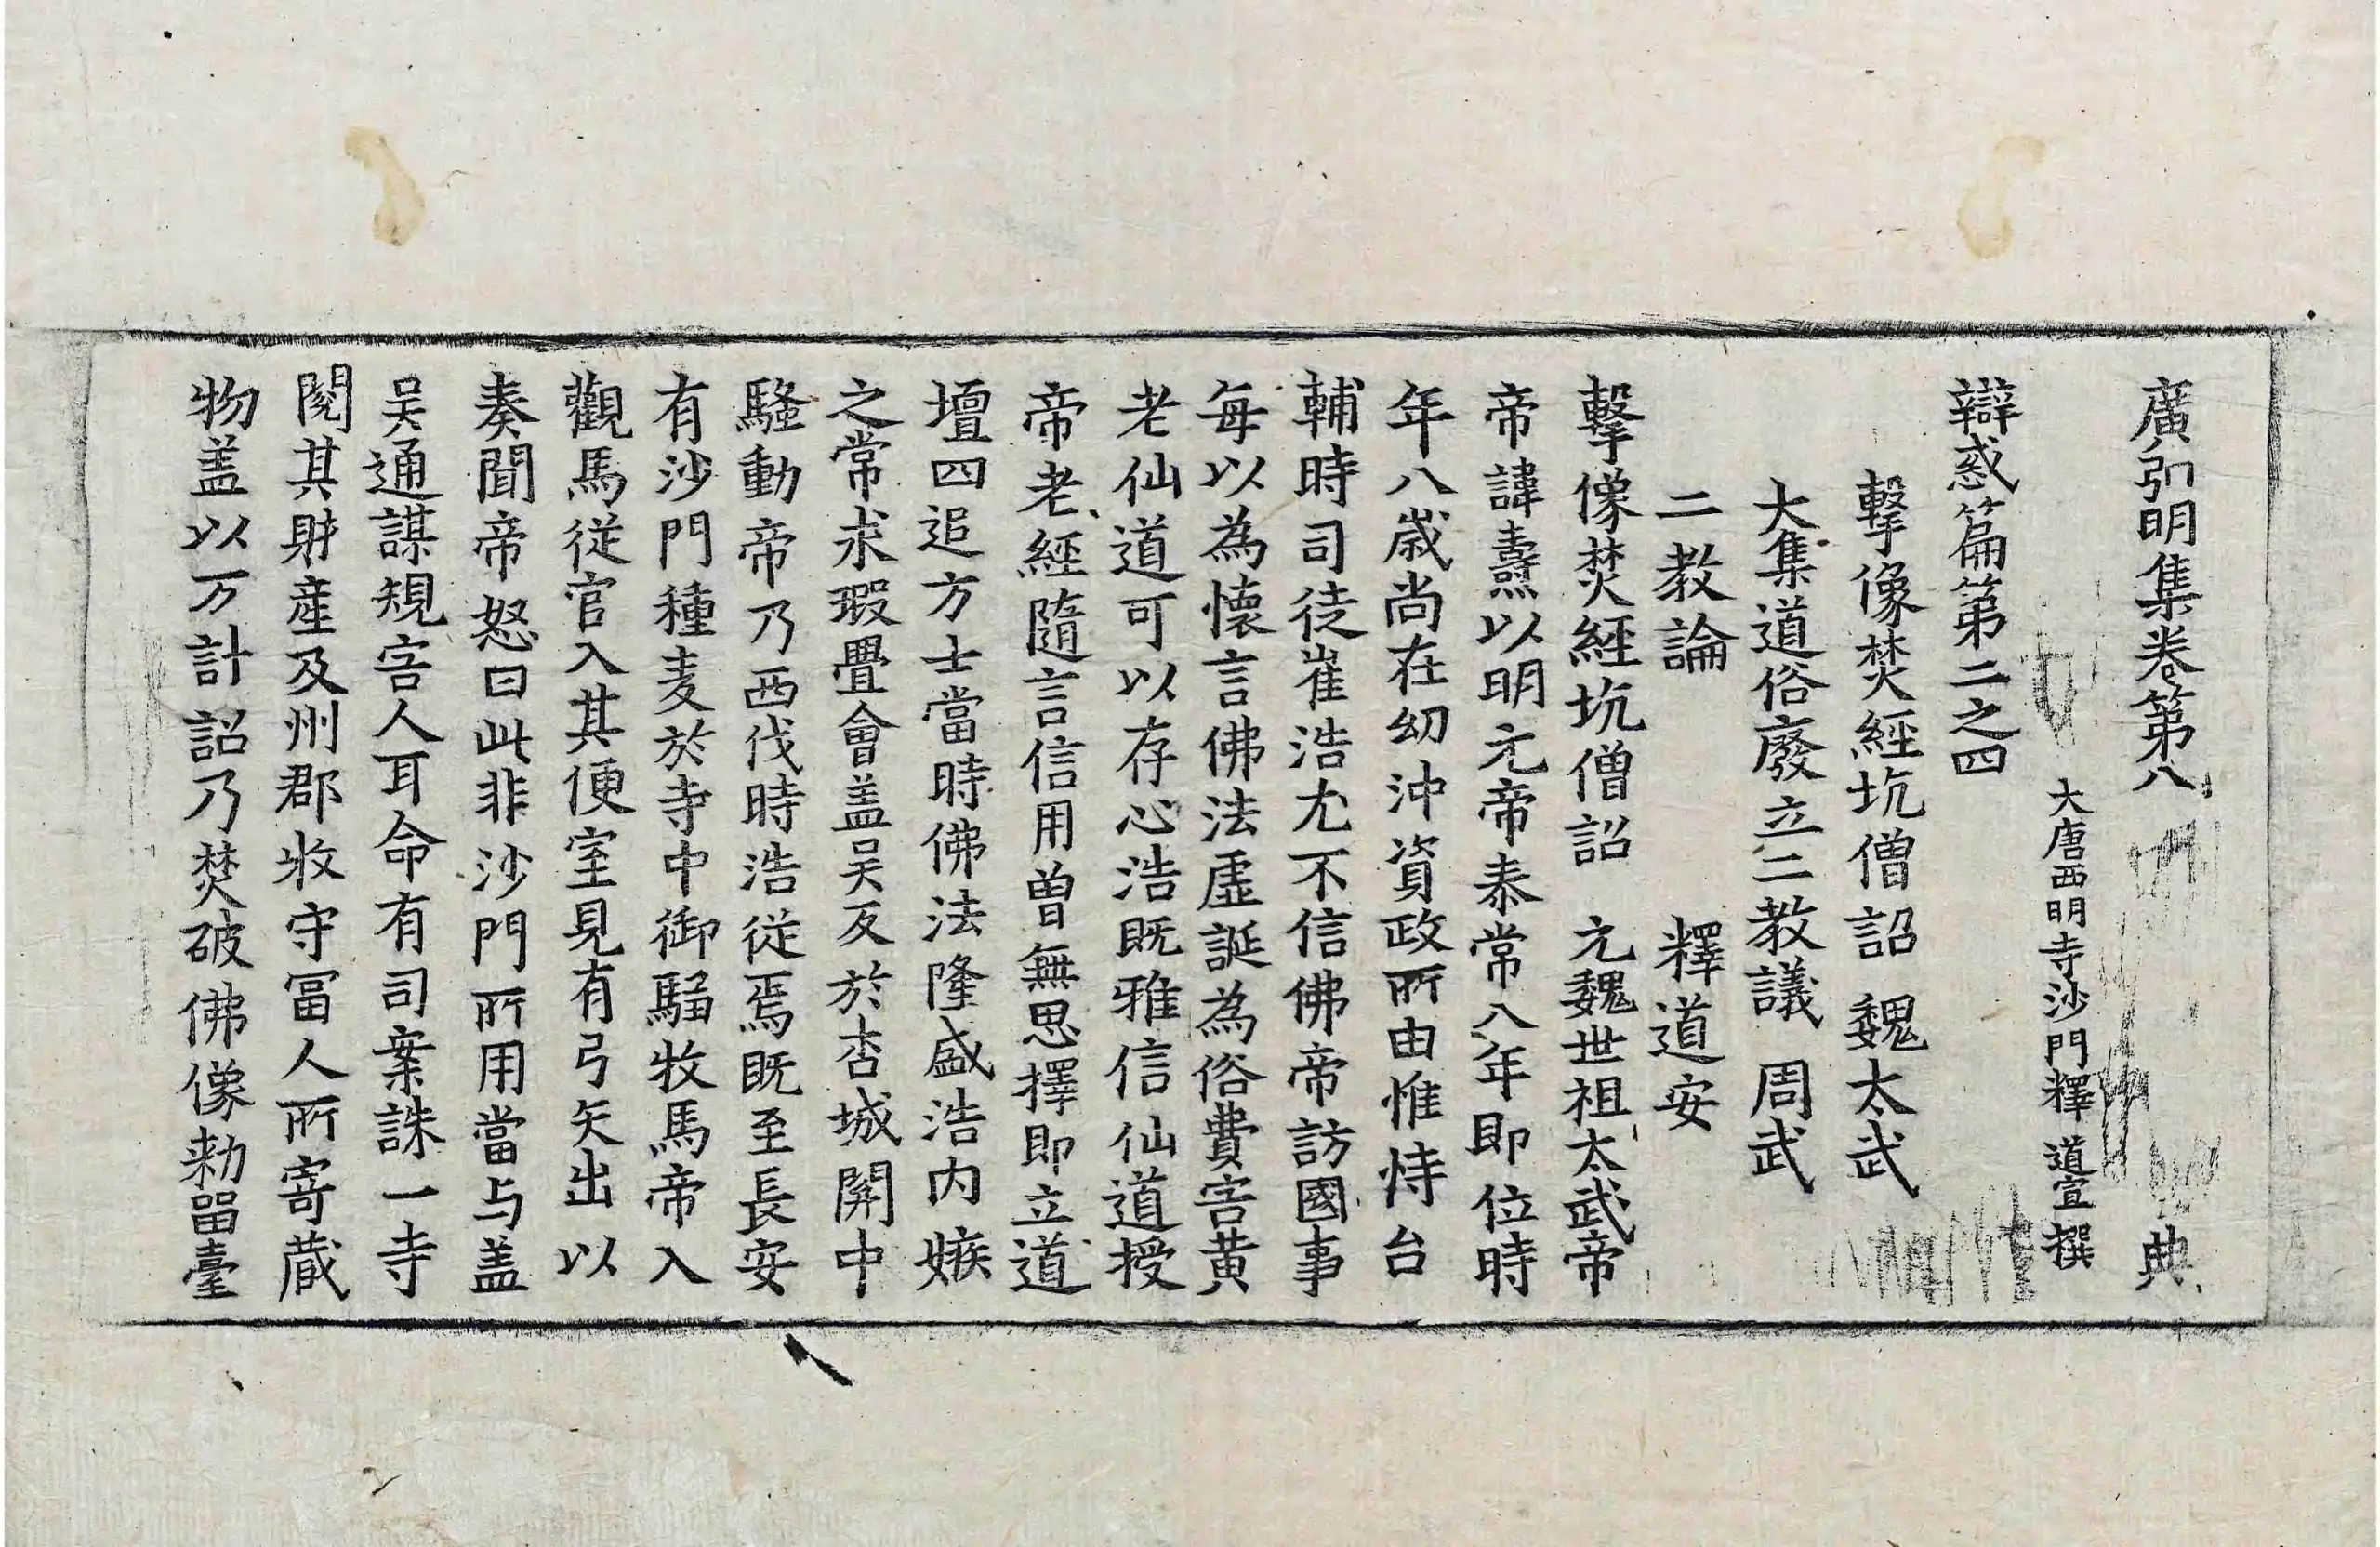 廣弘明集卷第八 典
大唐西明寺沙門釋道宣撰
辯惑篇第二之四
擊像焚經坑僧詔 魏太武
大集道俗廢立二教議 周武
二教論 釋道安
擊像焚經坑僧詔 元魏世祖太武帝
帝諱燾以明元帝泰常八年即位時
年八歳尚在幼沖資政所由惟恃台
輔時司徒崔浩尤不信佛帝訪國事
每以為懷言佛法虛誕為俗費害黃
老仙道可以存心浩既雅信仙道授
帝老經隨言信用曽無思擇即立道
壇四追方士當時佛法隆盛浩内嫉
之常求瑕舋會盖吴反於杏城関中
騷動帝乃西伐時浩從焉既至長安
有沙門種麦於寺中御騶牧馬帝入
觀馬從官入其便室見有弓矢出以
奏聞帝怒曰此非沙門所用當与盖
吴通謀規害人耳命有司案誅一寺
閱其財產及州郡牧守冨人所寄蔵
物盖以万計詔乃焚破佛像勑留臺